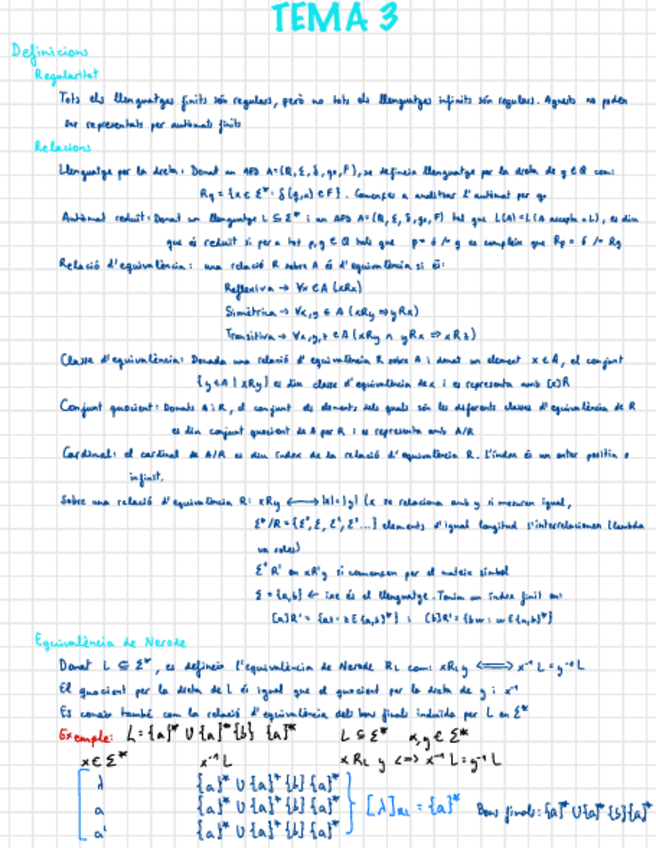 TEMA 3
Definicions
Regularitat
Tots els llenguatges finits són regulars, però no tots els llenguatges infinits són regulars. Aquests no poden
ser representats per autòmats finits
Relacions
Llenguatge per la dreta: Donat un AFD A=(Q, Σ, δ, q₀, F), se defineix llenguatge per la dreta de q ∈ Q com:
Rq = {x ∈ Σ* : δ(q,x) ∈ F}. Començes a analitzar l'autòmat per q₀
Autòmat reduït: Donat un llenguatge L ⊆ Σ* i un AFD A=(Q, Σ, δ, q₀, F) tal que L(A)=L (A accepta a L), es diu
que és reduït si per a tot p,q ∈ Q tals que p≠q es compleix que Rp ≠ Rq
Relació d'equivalència: una relació R sobre A és d'equivalència si és:
Reflexiva → ∀x ∈ A (xRx)
Simètrica → ∀x,y ∈ A (xRy ⇒ yRx)
Transitiva → ∀x,y,z ∈ A (xRy ∧ yRx ⇒ xRz)
Classe d'equivalència: Donada una relació d'equivalència R sobre A i donat un element x ∈ A, el conjunt
{y ∈ A | xRy} es diu classe d'equivalència de x i es representa amb [x]R
Conjunt quocient: Donats A i R, el conjunt els elements dels quals són les diferents classes d'equivalència de R
es diu conjunt quocient de A per R i es representa amb A/R
Cardinal: el cardinal de A/R es diu índex de la relació d'equivalència R. L'índex és un enter positiu o
infinit.
Sobre una relació d'equivalència R: xRy ⟷ |x|=|y| (x se relaciona amb y si mesuren igual,
Σ*/R = {Σ⁰, Σ, Σ², Σ³...} elements d'igual longitud s'interrelacionen (lambda
va soles)
Σ* R' on xR'y si comencen per el mateix símbol
Σ = {a,b} ← ixe és el llenguatge. Tenim un índex finit on:
[a]R' = {ax : x ∈ {a,b}*} ; [b]R' = {bw : w ∈ {a,b}*}
Equivalència de Nerode
Donat L ⊆ Σ*, es defineix l'equivalència de Nerode RL com: xRLy ⟺ x⁻¹L = y⁻¹L
El quocient per la dreta de L és igual que el quocient per la dreta de y i x⁻¹
Es coneix també com la relació d'equivalència dels bons finals induïda por L en Σ*
Exemple: L = {a}* ∪ {a}*{b} {a}* L ⊆ Σ* x,y ∈ Σ*
x ∈ Σ* x⁻¹L x RL y <=> x⁻¹L = y⁻¹L
λ {a}* ∪ {a}*{b}{a}*
a {a}* ∪ {a}*{b}{a}* [λ]RL = {a}* Bons finals: {a}* ∪ {a}*{b}{a}*
aⁱ {a}* ∪ {a}*{b}{a}*